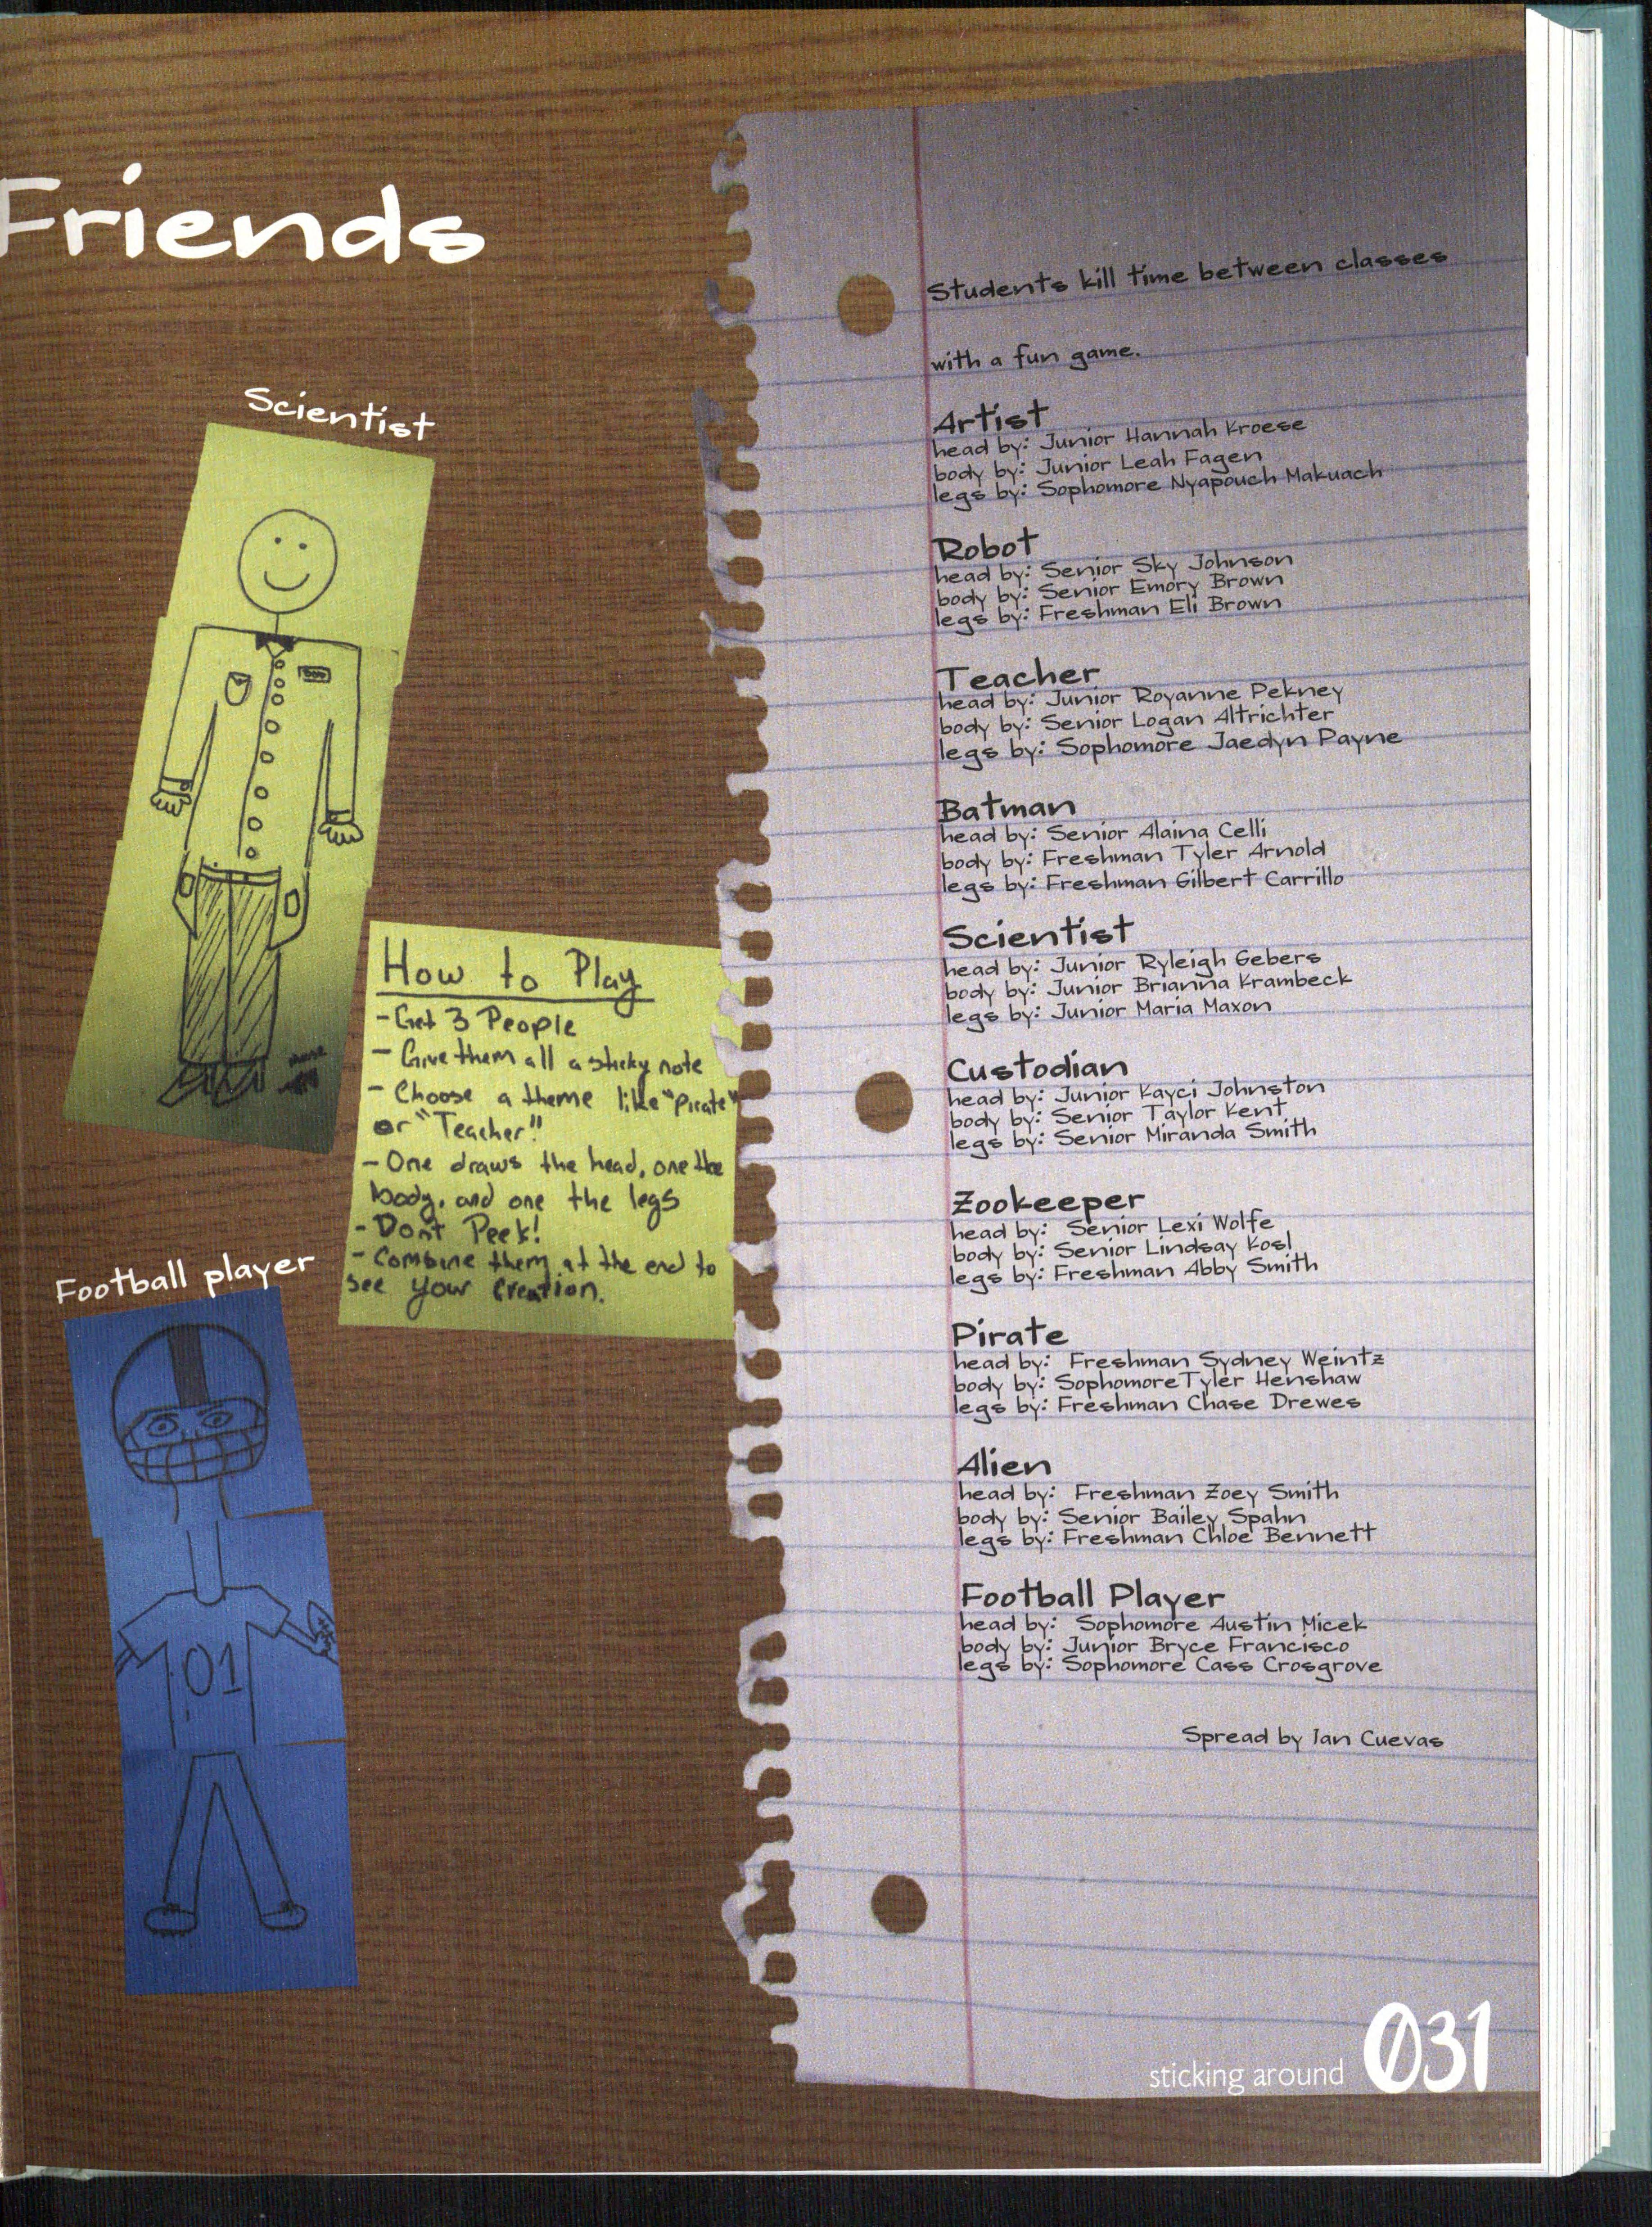 Friends
Scientist
How to Play
- Get 3 People
- Give them all a sticky note
- Choose a theme like "Pirate"
or "Teacher!"
- One draws the head, one the
body, and one the legs
- Dont Peek!
- Combine them at the end to
see your creation.
Football player
01
Students kill time between classes
with a fun game.
Artist
head by: Junior Hannah Kroese
body by: Junior Leah Fagen
legs by: Sophomore Nyapouch Makuach
Robot
head by: Senior Sky Johnson
body by: Senior Emory Brown
legs by: Freshman Eli Brown
Teacher
head by: Junior Royanne Pekney
body by: Senior Logan Altrichter
legs by: Sophomore Jaedyn Payne
Batman
head by: Senior Alaina Celli
body by: Freshman Tyler Arnold
legs by: Freshman Gilbert Carrillo
Scientist
head by: Junior Ryleigh Gebers
body by: Junior Brianna Krambeck
legs by: Junior Maria Maxon
Custodian
head by: Junior Kayci Johnston
body by: Senior Taylor Kent
legs by: Senior Miranda Smith
Zookeeper
head by: Senior Lexi Wolfe
body by: Senior Lindsay Kosl
legs by: Freshman Abby Smith
Pirate
head by: Freshman Sydney Weintz
body by: Sophomore Tyler Henshaw
legs by: Freshman Chase Drewes
Alien
head by: Freshman Zoey Smith
body by: Senior Bailey Spahn
legs by: Freshman Chloe Bennett
Football Player
head by: Sophomore Austin Micek
body by: Junior Bryce Francisco
legs by: Sophomore Cass Crosgrove
Spread by Ian Cuevas
sticking around 031